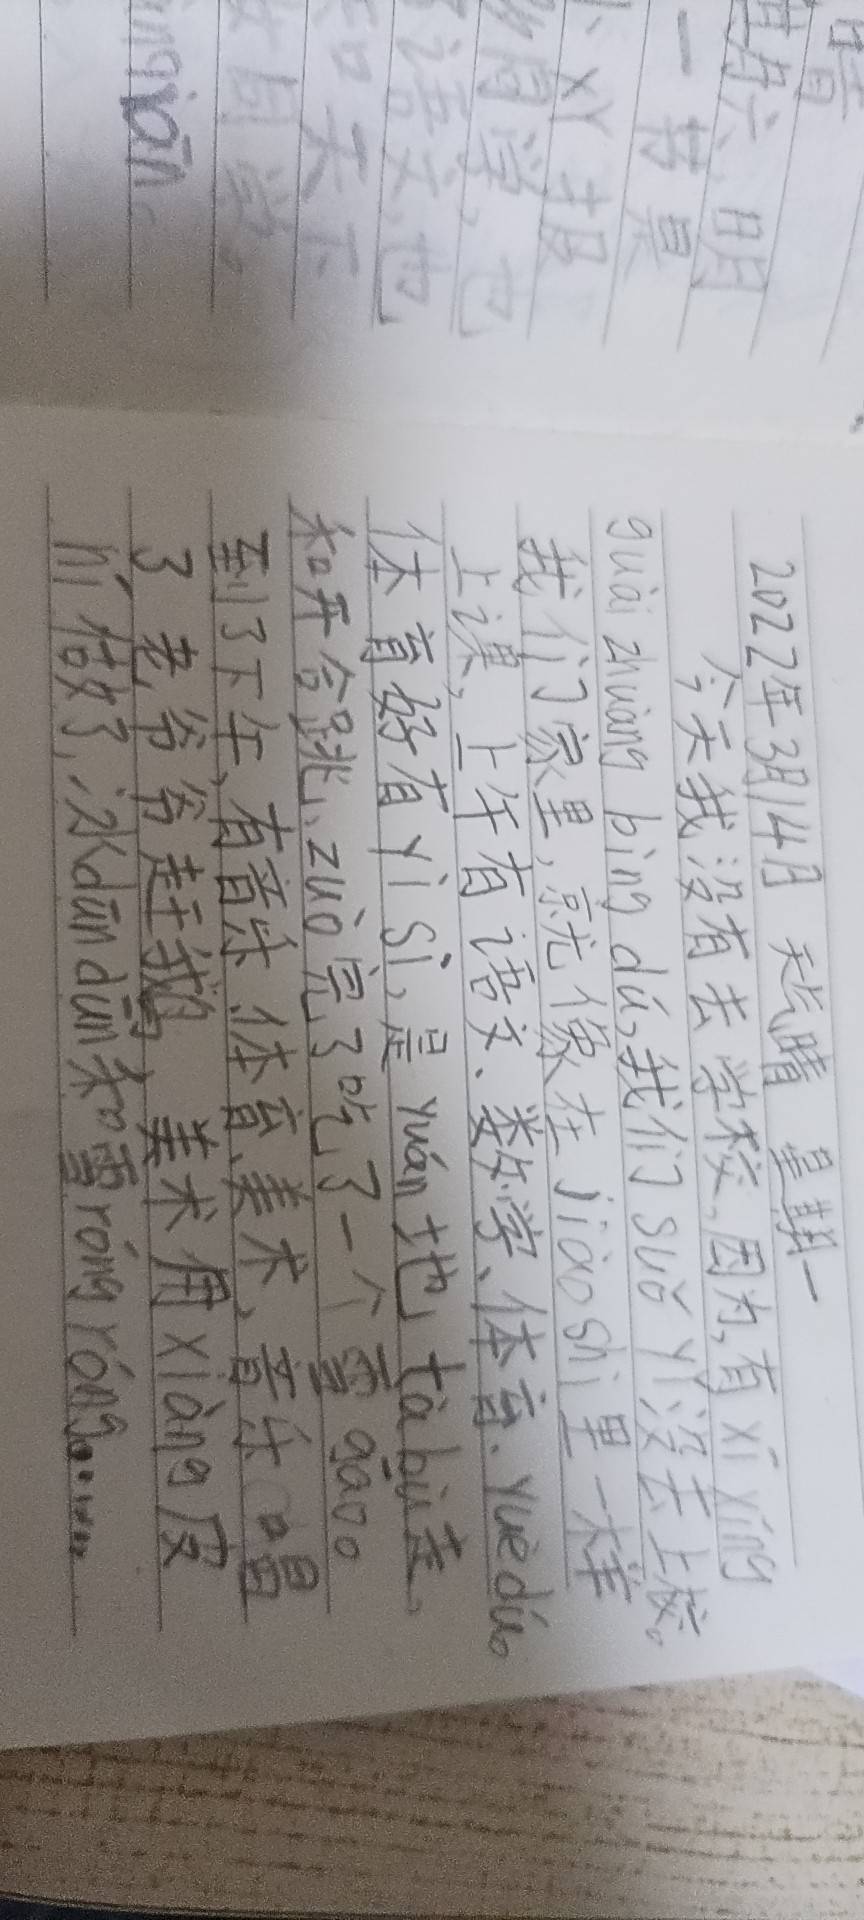 晴
六,明
一节是
小xy报
同学,也
语文,也
和天下
同学,
2022年3月14日 天气晴 星期一
今天我没有去学校,因为,有xí xíng
guài zhuàng bìng dú,我们suǒ yǐ没去上校。
我们家里,就像在jiào shì里一样
上课,上午有语文、数学、体育、yuè dú。
体育好有yì sī,是yuán地tà bù走、
和开合跳、zuò完了吃了一个雪gāo。
到了下午,有音乐、体育、美术,音乐唱
了老爷爷赶鹅,美术用xiàng皮
ní做了,冰dūn dūn和雪róng róng……